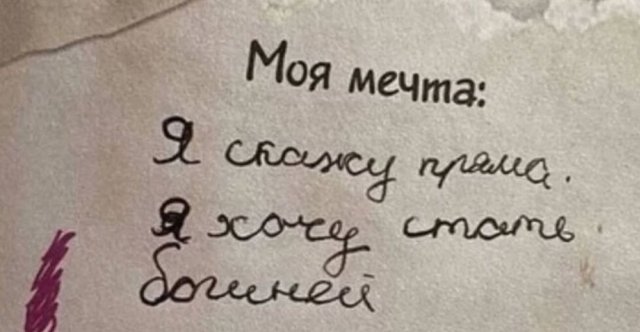 Моя мечта:
Я скажу пряма.
Я хочу стать
богиней